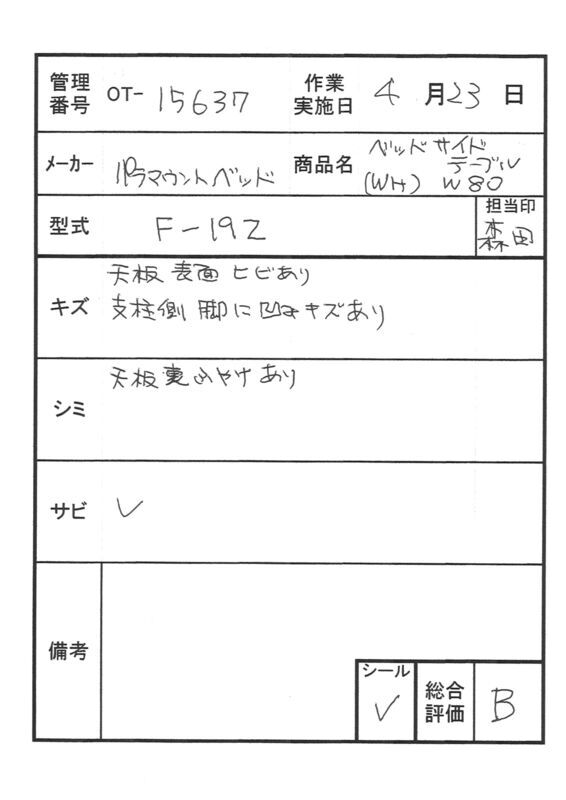 管理番号 OT- 15637 作業実施日 4 月 23 日
メーカー パラマウントベッド 商品名 ベッドサイドテーブル (WH) W80
型式 F-192 担当印 森田
キズ 天板 表面 ヒビあり
支柱側 脚に凹みキズあり
シミ 天板裏ふやけあり
サビ ✓
備考
シール ✓ 総合評価 B